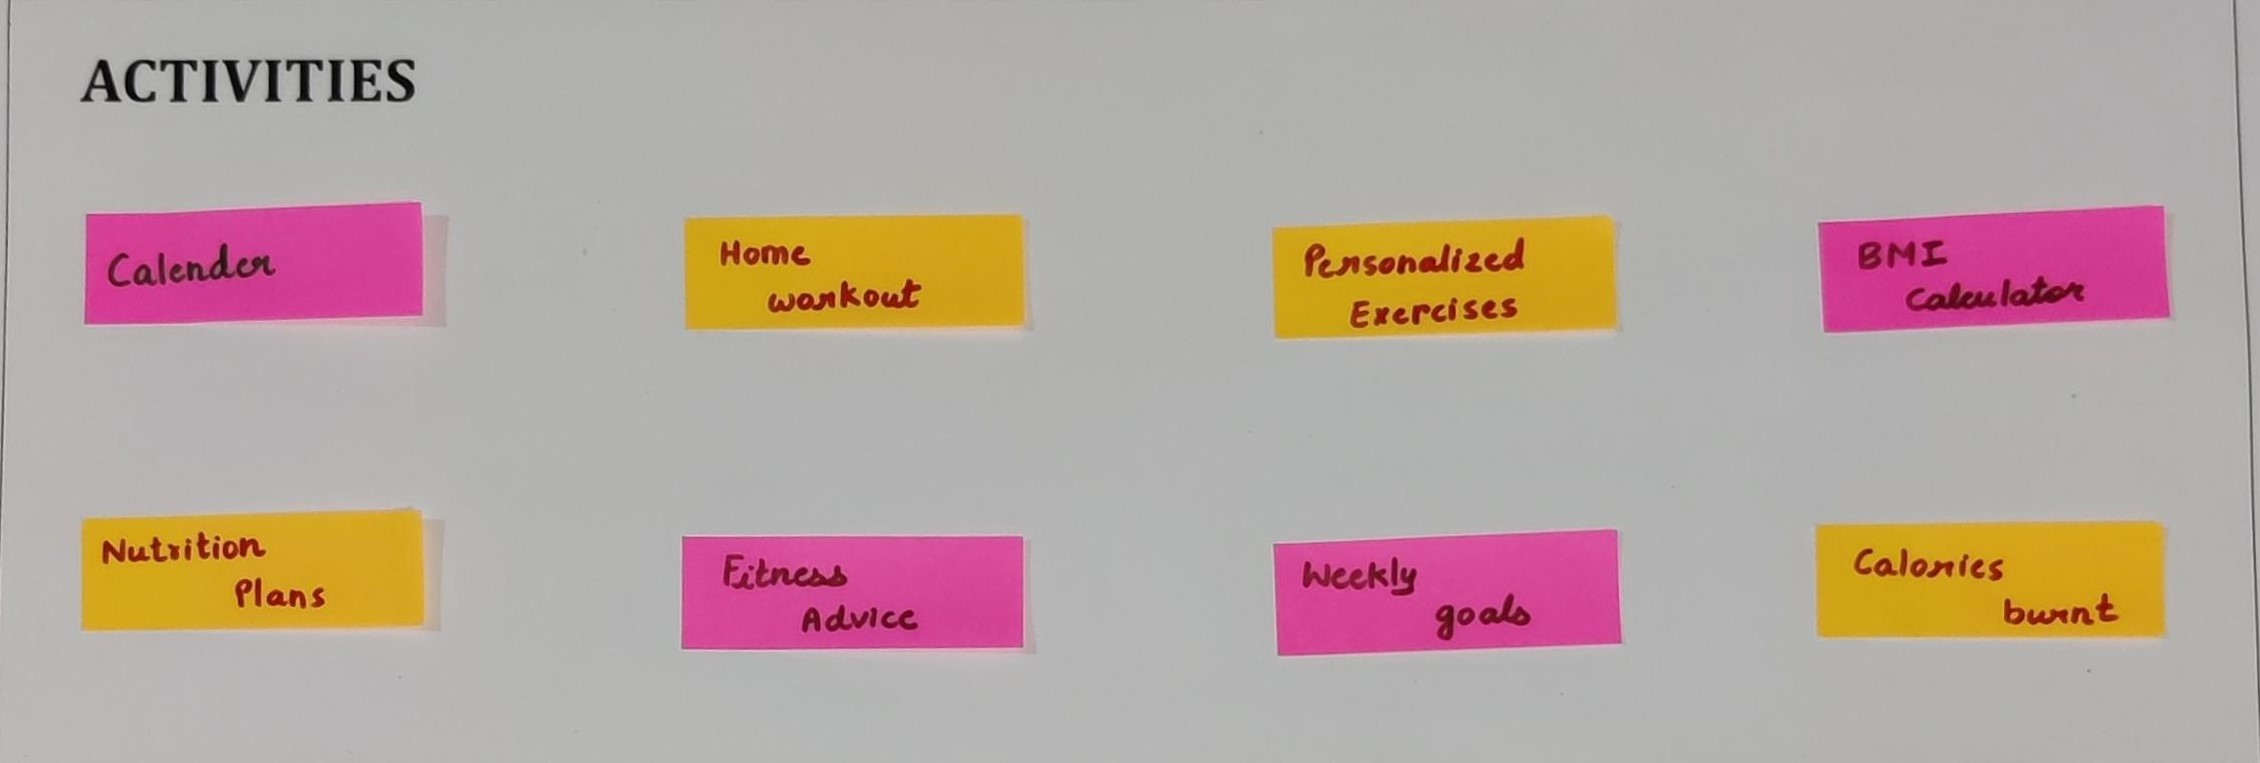 ACTIVITIES
Calender
Home
workout
Personalized
Exercises
BMI
Calculator
Nutrition
Plans
Fitness
Advice
Weekly
goals
Calories
burnt